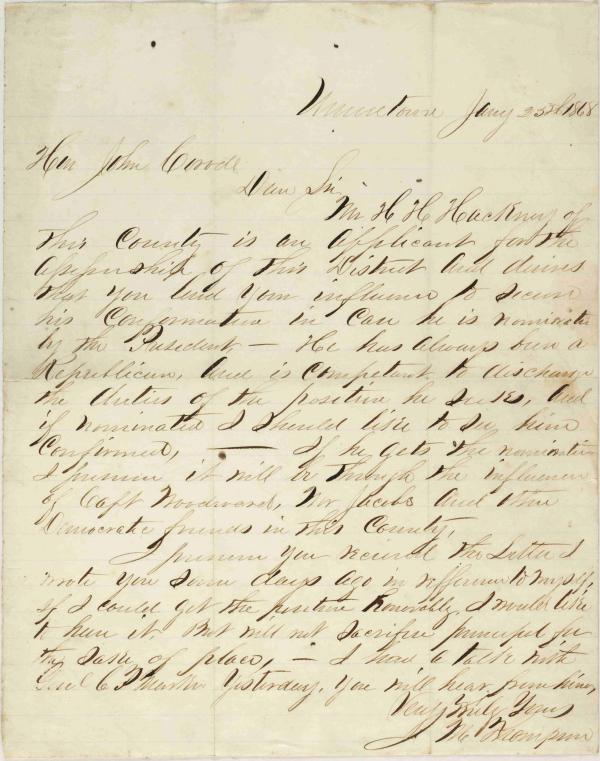 Uniontown Jany 25th 1868
Hon John Covode
Dear Sir
Mr H H Hackney of
this County is an applicant for the
assessorship of this District and desires
that you lend your influence to secure
his Conformation in Case he is nominated
by the President — He has always been a
Republican, and is competent to discharge
the duties of the position he seeks, and
if nominated I should like to see him
Confirmed, — If he gets the nomination
I presume it will be through the influence
of Capt Woodward, Mr Jacobs and other
Democratic friends in this County,
I presume you received the Letter I
wrote you some days ago in refference to myself,
if I could get the position honorably I would like
to have it But will not sacrifice principal for
the sake of place, — I had a talk with
yesterday, you will hear from him,
Very Truly Yours
Thompson